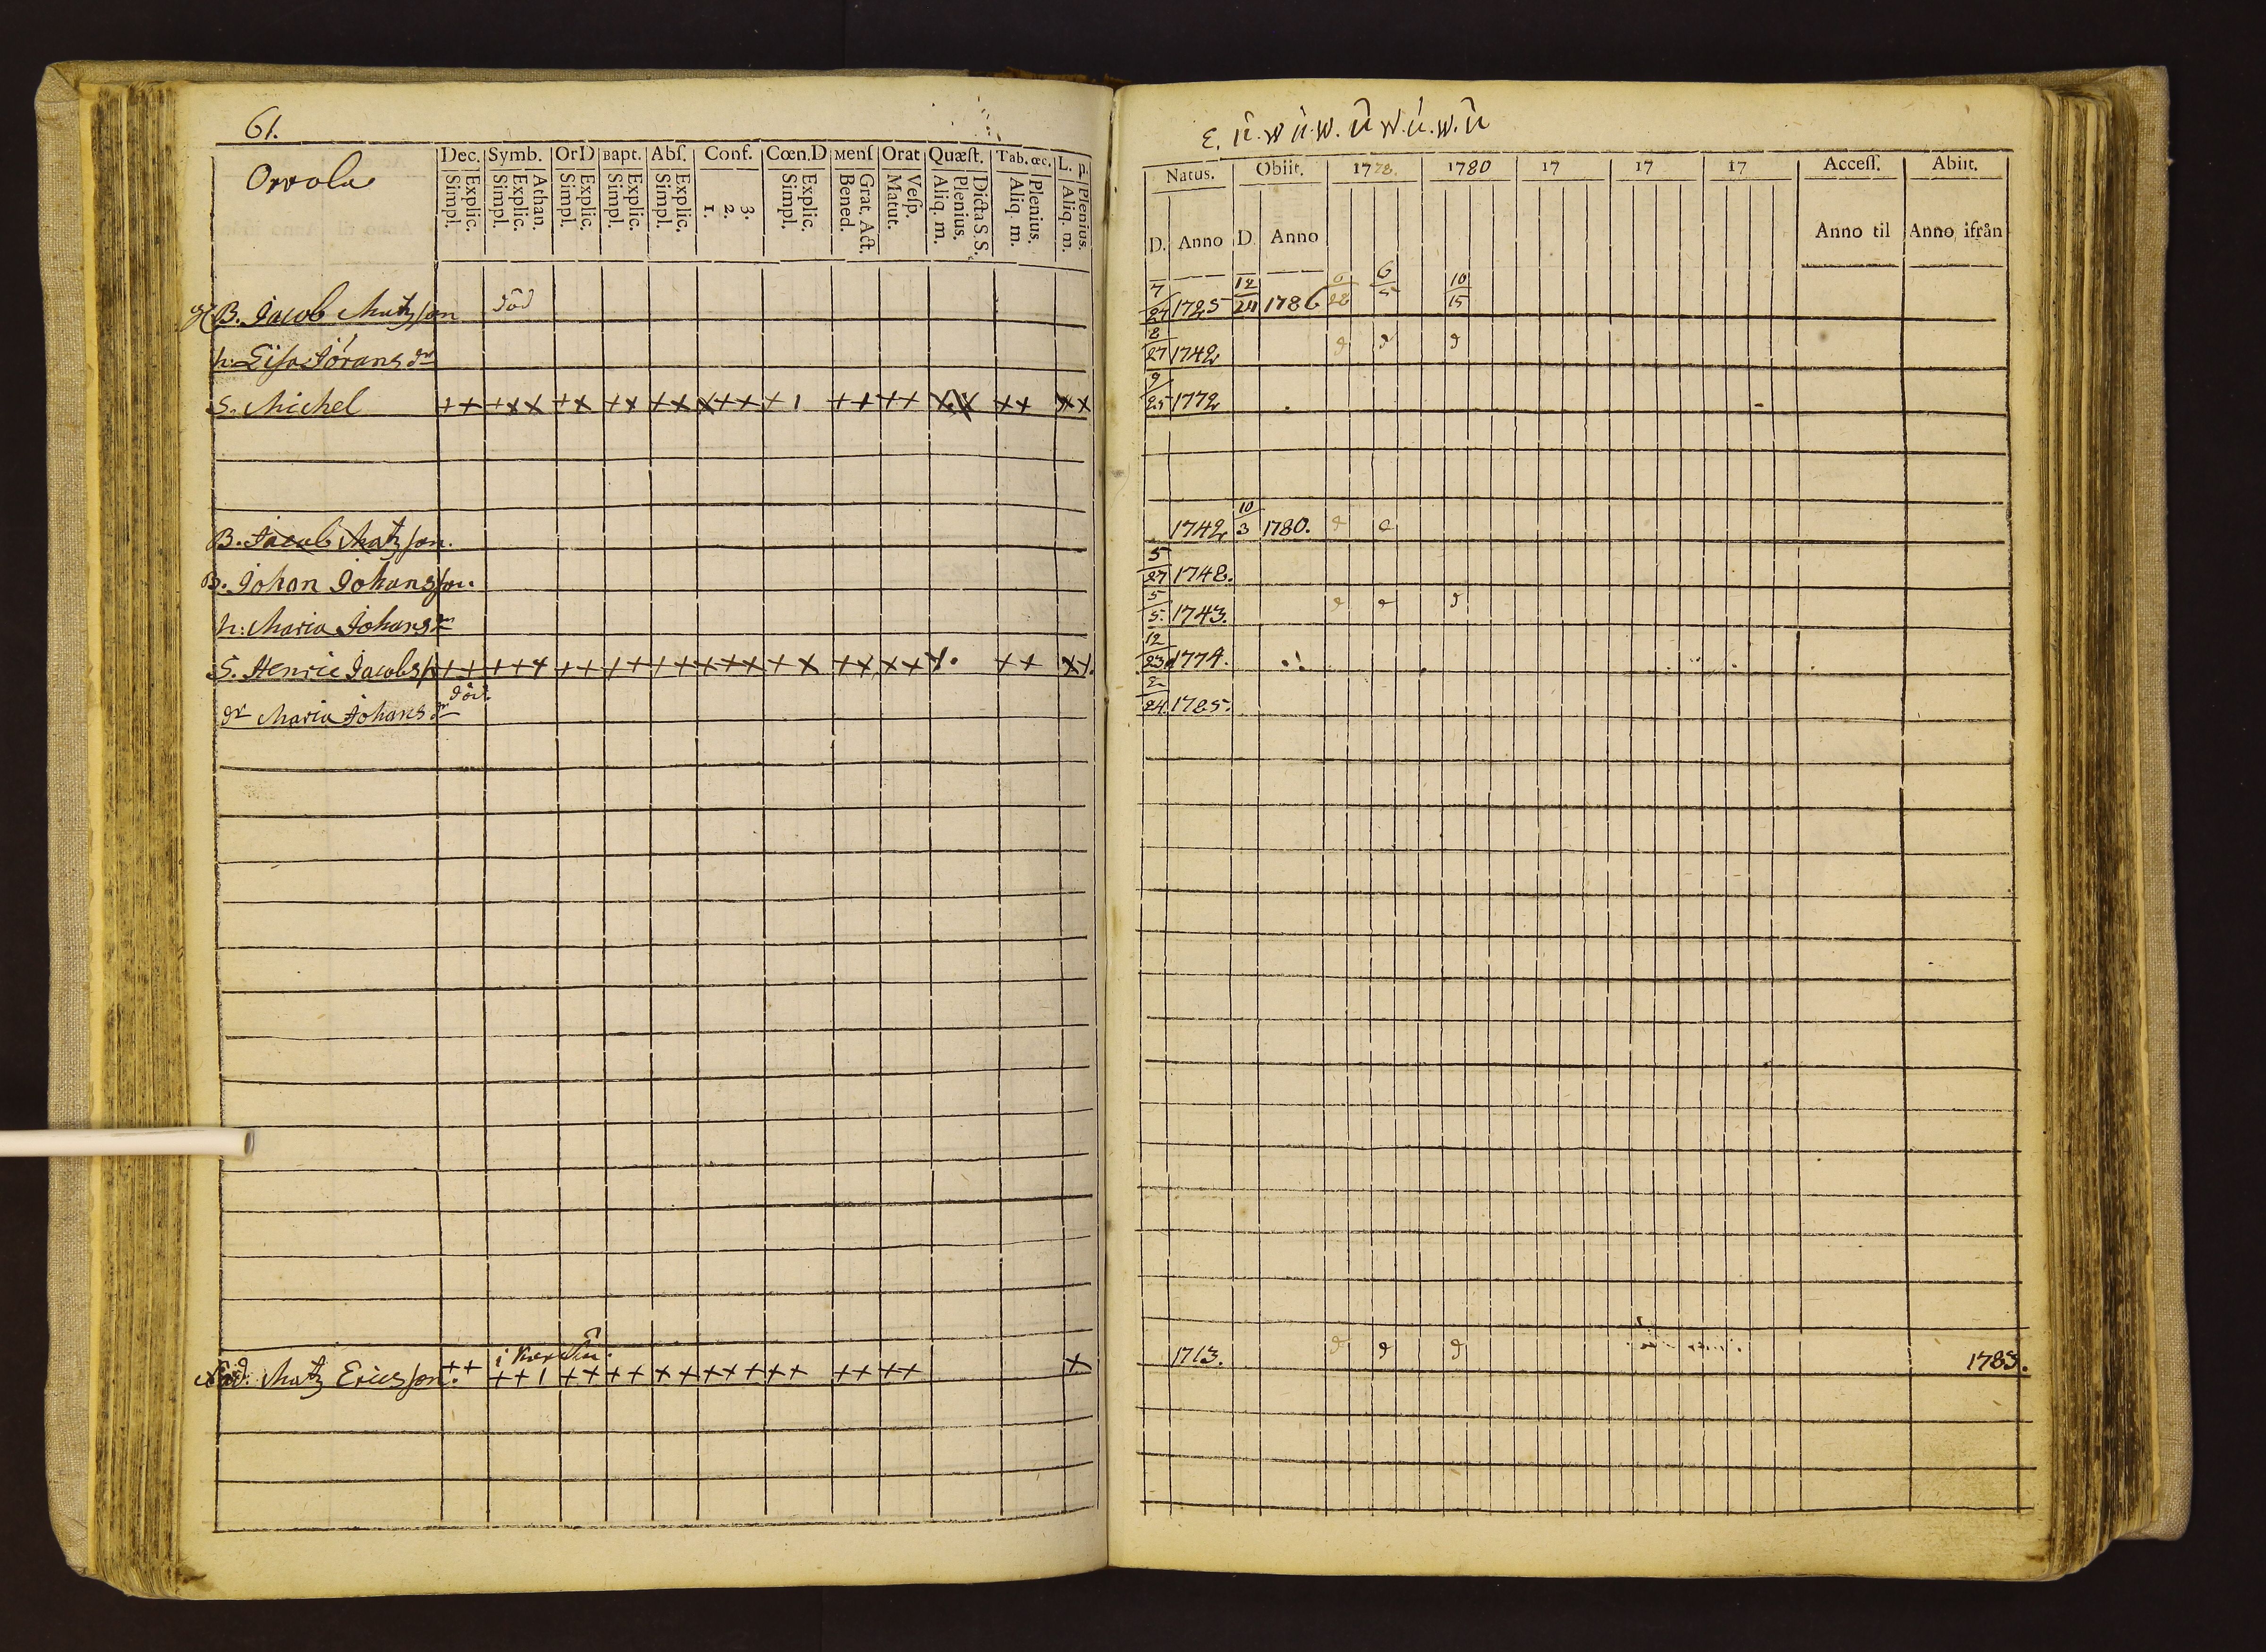 61.
Orvola
Dec. Symb. OrD Bapt. Abſ. Conf. Cœn.D Menſ Orat Quæſt. Tab. œc. L. n.
Simpl. Explic. Simpl. Explic. Athan. Simpl. Explic. Simpl. Explic. Simpl. Explic. 1. 2. 3. Simpl. Explic. Bened. Grat. Act. Matut. Veſp. Aliq. m. Plenius. Dicta S.S. Aliq. m. Plenius. Aliq. m. Plenius.
B. Jacob Matzson död
h. Lisa Jörans dr
S. Michel ++ +xx +x +x +x x++ + 1 ++ ++ xx ++ xx
B. Jacob Matzson.
B. Johan Johansson.
h: Maria Johans dr
S. Henric Jacobss ++ +++ ++ ++ ++ +++ + x ++ x+ x. ++ x+.
död.
dr Maria Johans dr
i
Matz Ericsson. ++ ++1 ++ ++ ++ +++ ++ ++ ++ +
Natus. Obiit. 1778. 1780 17 17 17 Acceſſ. Abiit.
D. Anno D. Anno Anno til Anno ifrån
7/24 1725 12/24 1786 6/28 6/5 10/15
8/27 1742
9/25 1772
1742 10/3 1780.
5/27 1748.
5/5. 1743.
12/23 1774.
2/24. 1785.
1713. 1783.